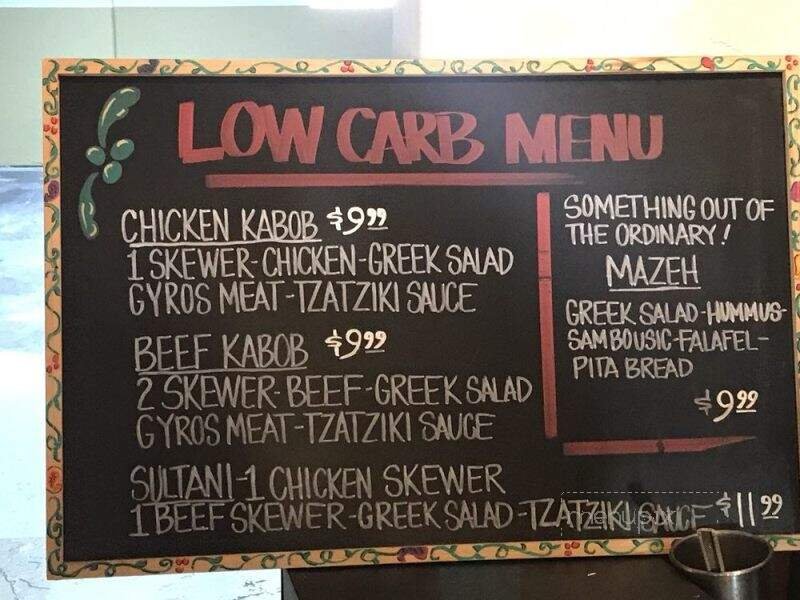 LOW CARB MENU
CHICKEN KABOB $9.99
1 SKEWER-CHICKEN-GREEK SALAD
GYROS MEAT-TZATZIKI SAUCE
BEEF KABOB $9.99
2 SKEWER-BEEF-GREEK SALAD
GYROS MEAT-TZATZIKI SAUCE
SULTANI-1 CHICKEN SKEWER
1 BEEF SKEWER-GREEK SALAD-TZATZIKI SAUCE $11.99
SOMETHING OUT OF
THE ORDINARY!
MAZEH
GREEK SALAD-HUMMUS-
SAMBOUSIC-FALAFEL-
PITA BREAD
$9.99